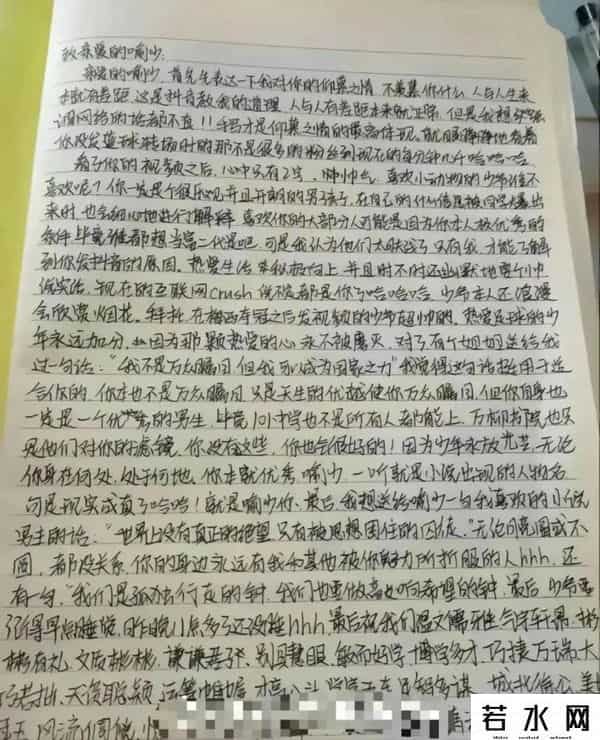 致亲爱的喻少:
亲爱的喻少,首先先表达一下我对你的仰慕之情,不羡慕你什么,人与人生来
就有差距,这是抖音教我的道理,人与人有差距本来就正常,但是我想
网络的话都不真!!手写才是仰慕之情的最高体现。
你没发篮球投场时的那不是很多的粉丝到现在的每分钟几千哈哈哈哈
看了你的视频之后,心中只有2字,帅帅气,喜欢小动物的少年谁不
喜欢呢?你一定是个很乐观并且开朗的男孩子,在自己的什么信息被同学爆出
来时,也会细心地进行了解释,喜欢你的大部分人可能是因为你本人极优秀的
条件,毕竟谁都想当富二代是吧,可是我认为他们太肤浅了,只有我,才能了解
到你发抖音的原因。热爱生活,积极向上,并且时不时还幽默地整个
活,现在的互联网crush说不定都是你了哈哈哈哈,少爷本人还浪漫
会欣赏烟花,拜托,在梅西夺冠之后发视频的少爷超帅的。热爱足球的少
年永远加分,因为那颗热爱的心永不被磨灭,对了有个姐姐送给我
过一句话:“我不是万众瞩目,但我可以成为国家之力”我觉得这句话挺用于适
合你的,你本也不是万众瞩目,只是天生的优越使你万众瞩目,但你自身也
一定是一个优秀的男生,毕竟101中学也不是所有人都能上,万柳书院也只
是他们对你的滤镜,你没有这些,你也会很好的!因为少年永放光芒,无论
你身在何处,处于何地,你本就优秀,喻少,一听就是小说出现的人物名
句是现实成真了哈哈!就是喻少你、最后,我想送给喻少一句我喜欢的小说
男主的话:“世界上没有真正的绝望,只有被思想困住的囚徒。”无论回国或不
回,都没关系,你的身边永远有我和其他被你努力所折服的人hhh,还
有一句,“我们是孤独行夜的钟,我们也要做高山响希望的钟,最后,少爷要
记得早点睡觉,昨晚11点多了还没睡hhh,最后祝我们温文儒雅,气宇轩昂,彬
彬有礼,文质彬彬,谦谦君子,别具慧眼,敏而好学,博学多才,巧接万端,大
巧若拙,天资聪颖,运筹帷幄,才高八斗,足智多谋,城北徐公,美
玉,风流倜傥
若水网